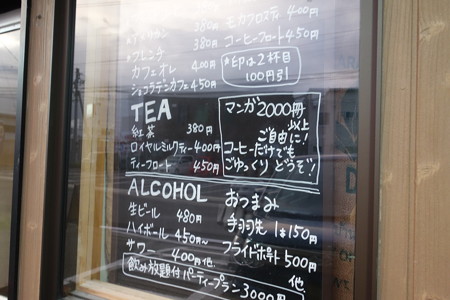 *アメリカン 380円
*フレンチ 380円
カフェオレ 400円
ショコラテンカフェ 450円
モカフロスティ 400円
コーヒーフロート 450円
*印は2杯目
100円引
TEA
紅茶 380円
ロイヤルミルクティー 400円
ティーフロート 450円
マンガ2000冊
以上
ご自由に!
コーヒーだけでも
ごゆっくりどうぞ!
ALCOHOL
生ビール 480円
ハイボール 450円~
サワー 400円 他
飲み放題付パーティープラン3000円
おつまみ
手羽先 1本150円
フライドポテト 500円
他